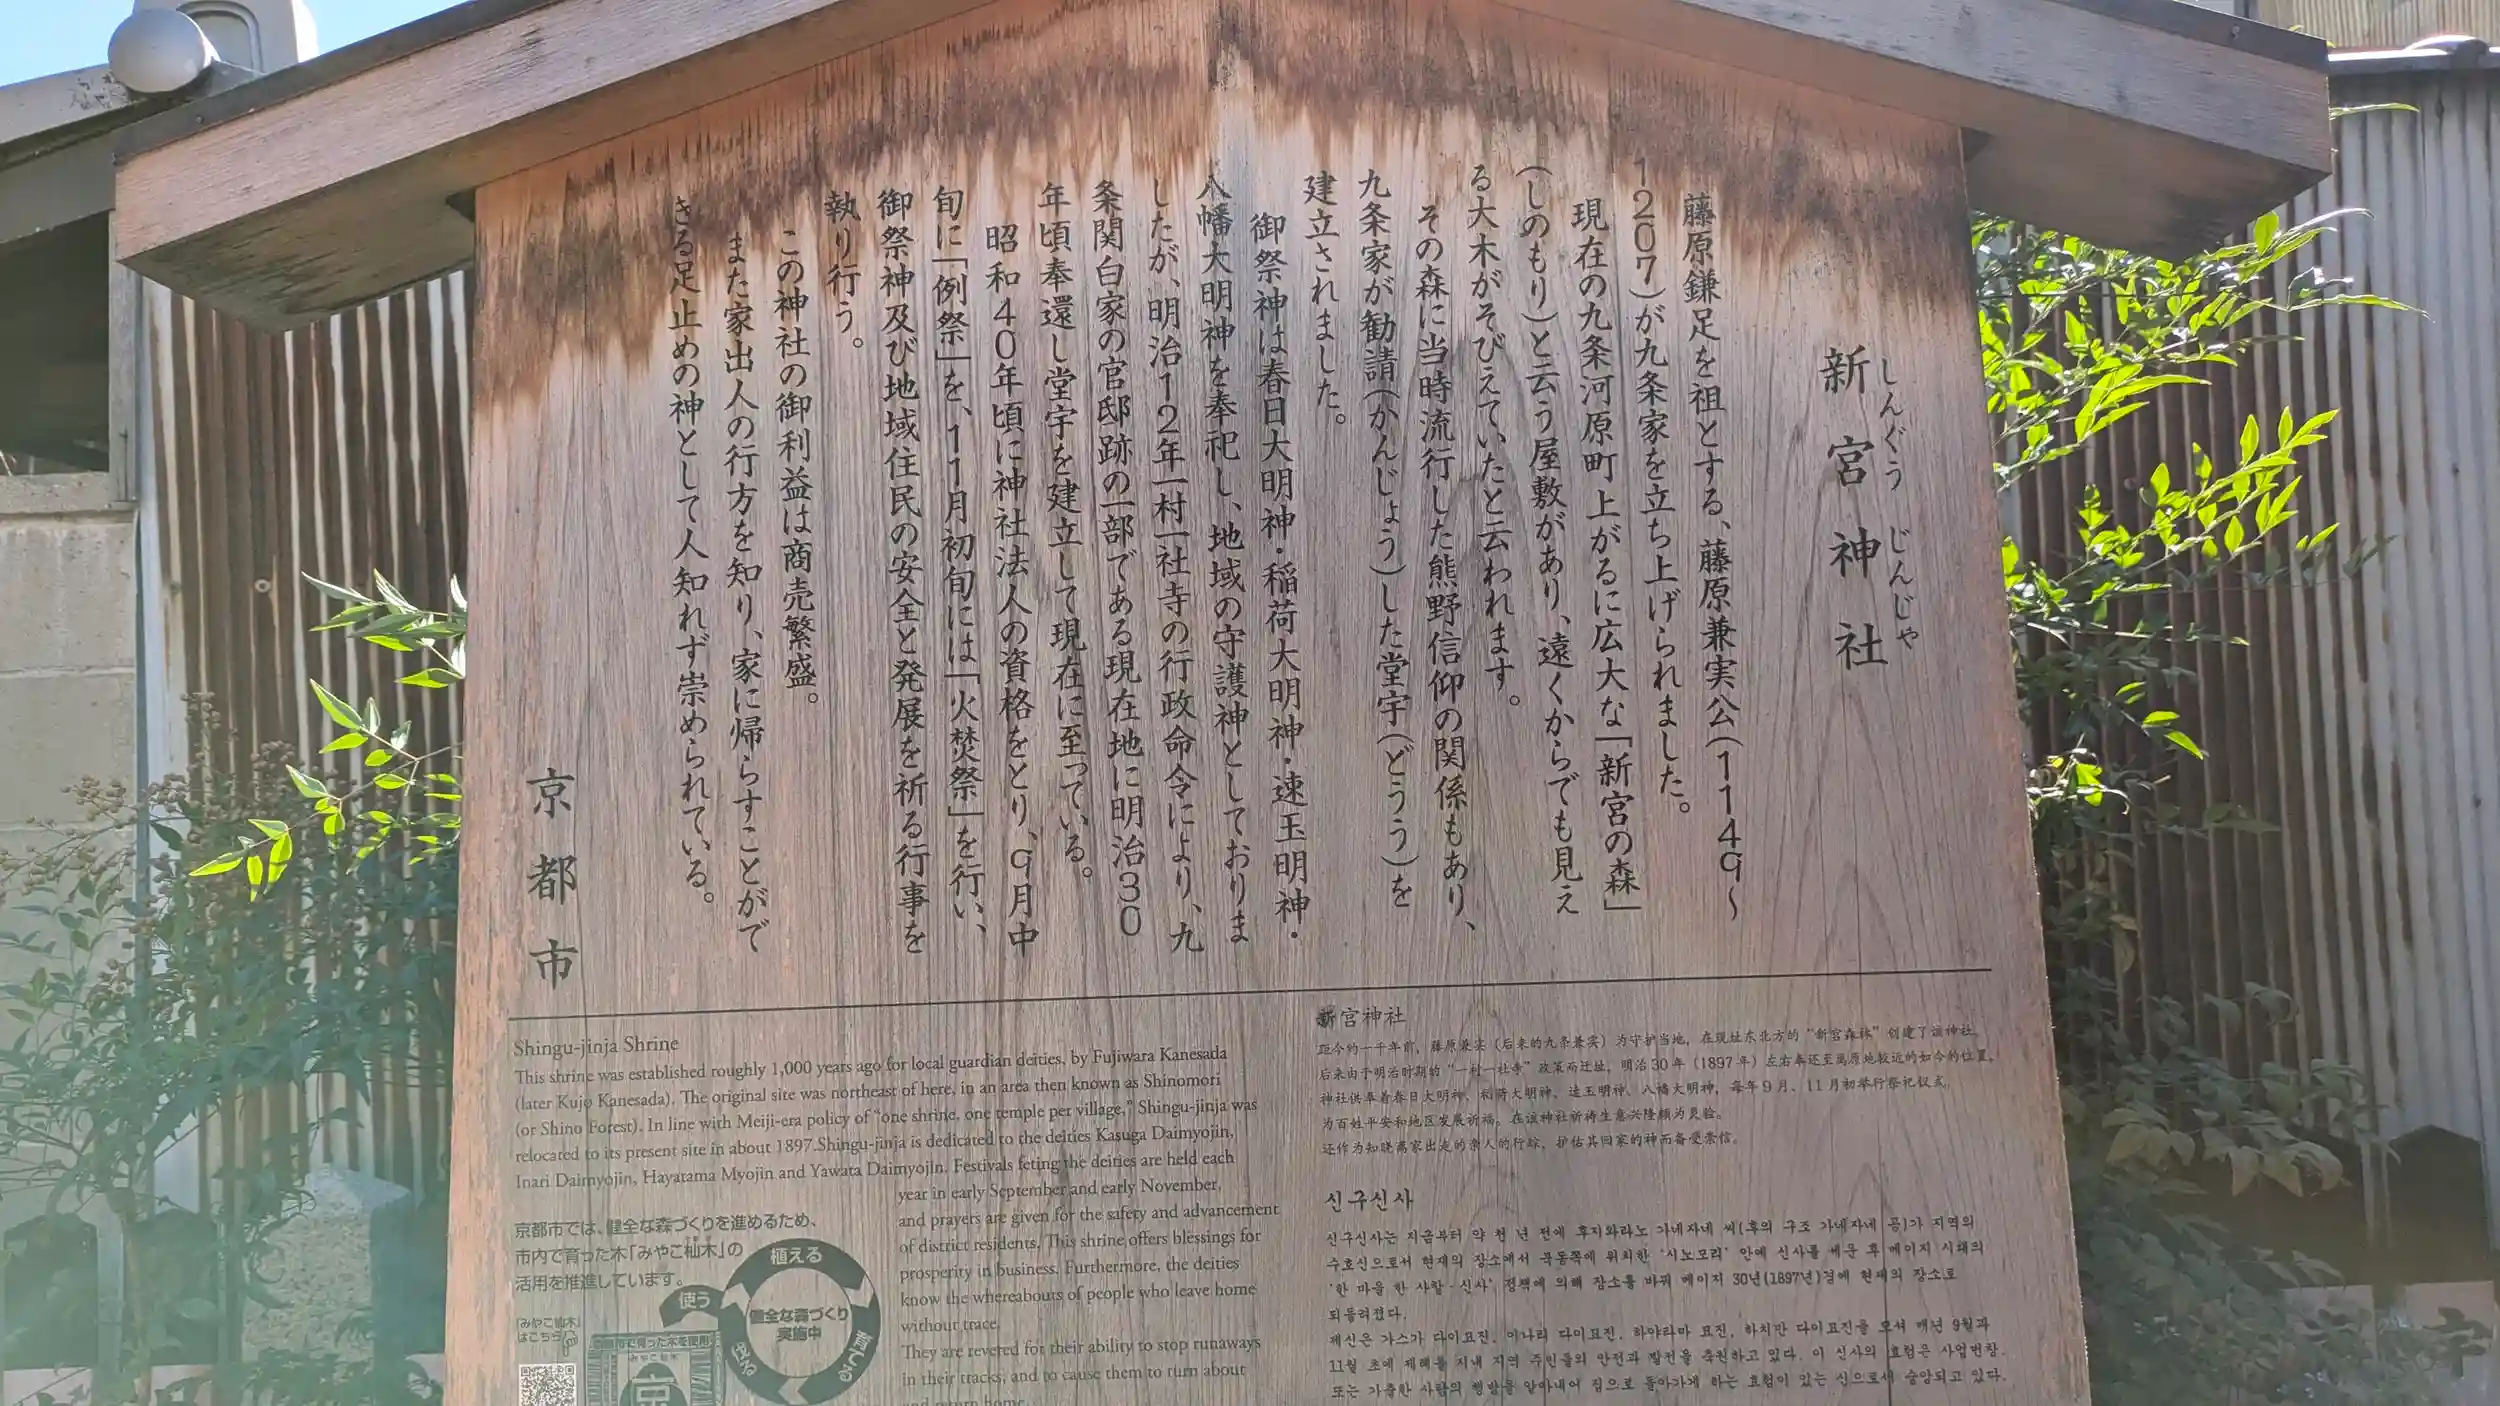 新宮神社
しんぐう じんじゃ
藤原鎌足を祖とする、藤原兼実公(1149〜
1207)が九条家を立ち上げられました。
現在の九条河原町上がるに広大な「新宮の森」
(しのもり)と云う屋敷があり、遠くからでも見え
る大木がそびえていたと云われます。
その森に当時流行した熊野信仰の関係もあり、
九条家が勧請(かんじょう)した堂宇(どうう)を
建立されました。
御祭神は春日大明神・稲荷大明神・速玉明神・
八幡大明神を奉祀し、地域の守護神としておりま
したが、明治12年一村一社寺の行政命令により、九
条関白家の官邸跡の一部である現在地に明治30
年頃奉還し堂宇を建立して現在に至っている。
昭和40年頃に神社法人の資格をとり、9月中
旬に「例祭」を、11月初旬には「火焚祭」を行い、
御祭神及び地域住民の安全と発展を祈る行事を
執り行う。
この神社の御利益は商売繁盛。
また家出人の行方を知り、家に帰らすことがで
きる足止めの神として人知れず崇められている。
京都市
Shingu-jinja Shrine
This shrine was established roughly 1,000 years ago for local guardian deities, by Fujiwara Kanesada
(later Kujo Kanesada). The original site was northeast of here, in an area then known as Shinomori
(or Shino Forest). In line with Meiji-era policy of “one shrine, one temple per village,” Shingu-jinja was
relocated to its present site in about 1897.Shingu-jinja is dedicated to the deities Kasuga Daimyojin,
Inari Daimyojin, Hayatama Myojin and Yawata Daimyojin. Festivals feting the deities are held each
year in early September and early November,
and prayers are given for the safety and advancement
of district residents. This shrine offers blessings for
prosperity in business. Furthermore, the deities
know the whereabouts of people who leave home
without trace.
They are revered for their ability to stop runaways
in their tracks, and to cause them to turn about
and return home.
京都市では、健全な森づくりを進めるため、
市内で育った木「みやこ杣木」の
活用を推進しています。
「みやこ杣木」
はこちら
植える
育てる
使う
健全な森づくり
実施中
みやこ杣木
京
新宮神社
距今约一千年前，藤原兼实（后来的九条兼实）为守护当地，在现址东北方的“新宫森林”创建了该神社。
后来由于明治时期的“一村一社寺”政策而迁址，明治30年（1897年）左右奉还至离原地较近的如今的位置。
神社供奉着春日大明神、稻荷大明神、速玉明神、八幡大明神，每年9月、11月初举行祭祀仪式，
为百姓平安和地区发展祈福。在该神社祈祷生意兴隆颇为灵验。
还作为知晓离家出走的亲人的行踪，护佑其回家的神而备受崇信。
신구신사
신구신사는 지금부터 약 천 년 전에 후지와라노 가네자네 씨(후의 구조 가네자네 공)가 지역의
수호신으로서 현재의 장소에서 북동쪽에 위치한 '시노모리' 안에 신사를 세운 후 메이지 시대의
'한 마을 한 사찰·신사' 정책에 의해 장소를 바꿔 메이지 30년(1897년)경에 현재의 장소로
되돌려졌다.
제신은 가스가 다이묘진, 이나리 다이묘진, 하야타마 묘진, 하치만 다이묘진을 모셔 매년 9월과
11월 초에 제례를 지내 지역 주민들의 안전과 발전을 축원하고 있다. 이 신사의 효험은 사업번창.
또는 가출한 사람의 행방을 알아내어 집으로 돌아가게 하는 효험이 있는 신으로서 숭앙되고 있다.